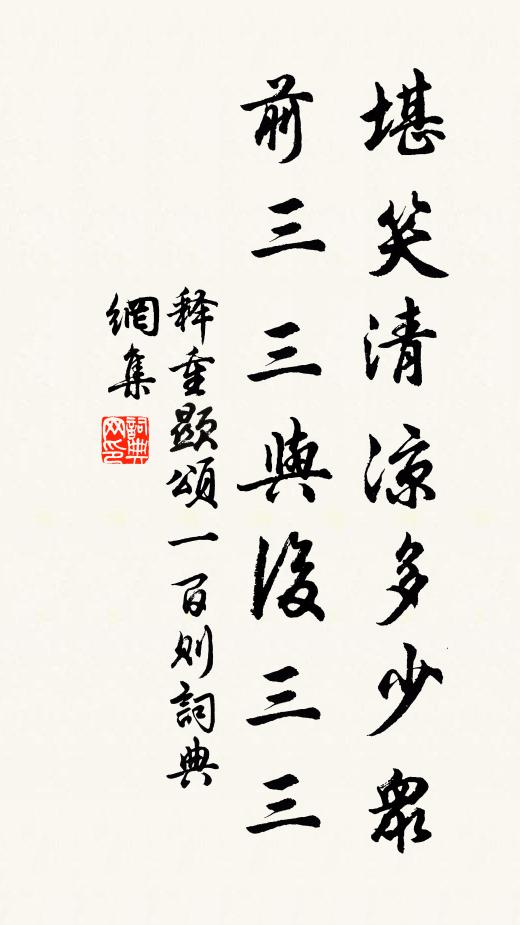 堪笑清涼多少眾
前三三與後三三
释重顯頌一百則詞典
網集
詞典
网印